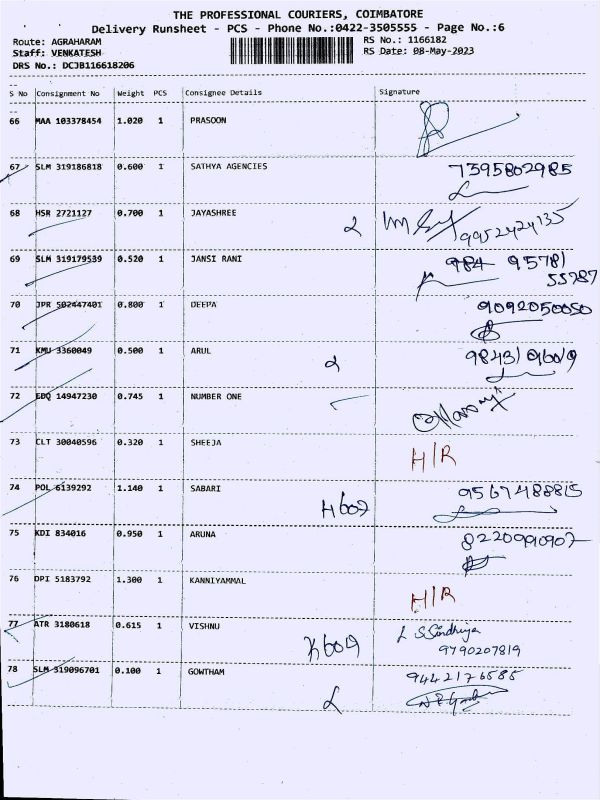 THE PROFESSIONAL COURIERS, COIMBATORE
Delivery Runsheet - PCS - Phone No.:0422-3505555 - Page No.:6
Route: AGRAHARAM RS No.: 1166182
Staff: VENKATESH RS Date: 08-May-2023
DRS No.: DCJB116618206
S No Consignment No Weight PCS Consignee Details Signature
66 MAA 103378454 1.020 1 PRASOON
67 SLM 319186818 0.600 1 SATHYA AGENCIES 7395802985
68 HSR 2721127 0.700 1 JAYASHREE 9952424135
69 SLM 319179539 0.520 1 JANSI RANI 984 95781
55787
70 JPR 502447401 0.800 1 DEEPA 9092050050
71 KMU 3360049 0.500 1 ARUL 9843196019
72 EDQ 14947230 0.745 1 NUMBER ONE
73 CLT 30040596 0.320 1 SHEEJA H/R
74 POL 6139292 1.140 1 SABARI H607 9567488815
75 KDI 834016 0.950 1 ARUNA 8220990907
76 DPI 5183792 1.300 1 KANNIYAMMAL H/R
77 ATR 3180618 0.615 1 VISHNU S Sindhiya
9790207819
78 SLM 319096701 0.100 1 GOWTHAM 9442176585